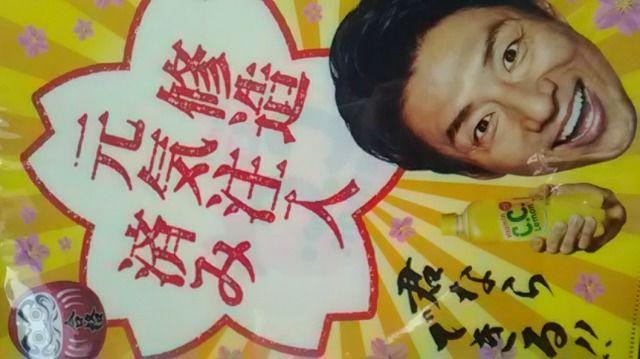 修造
元気注入
済み
君なら
できる!!
合格
C.C.
Lemon